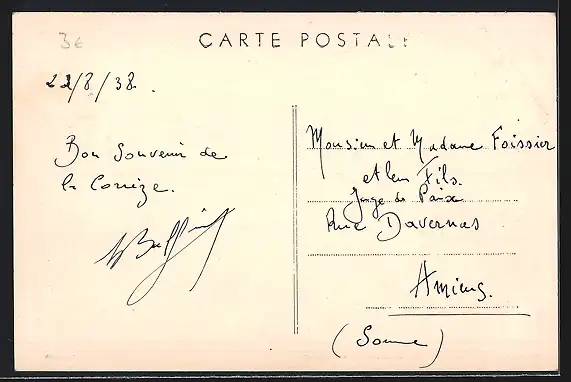 3€
CARTE POSTALE
22/8/38.
Bon Souvenir de
la Corrèze.
Monsieur et Madame Foissier
et leur Fils.
Juge de Paix
Rue Davernas
Amiens.
(Somme)